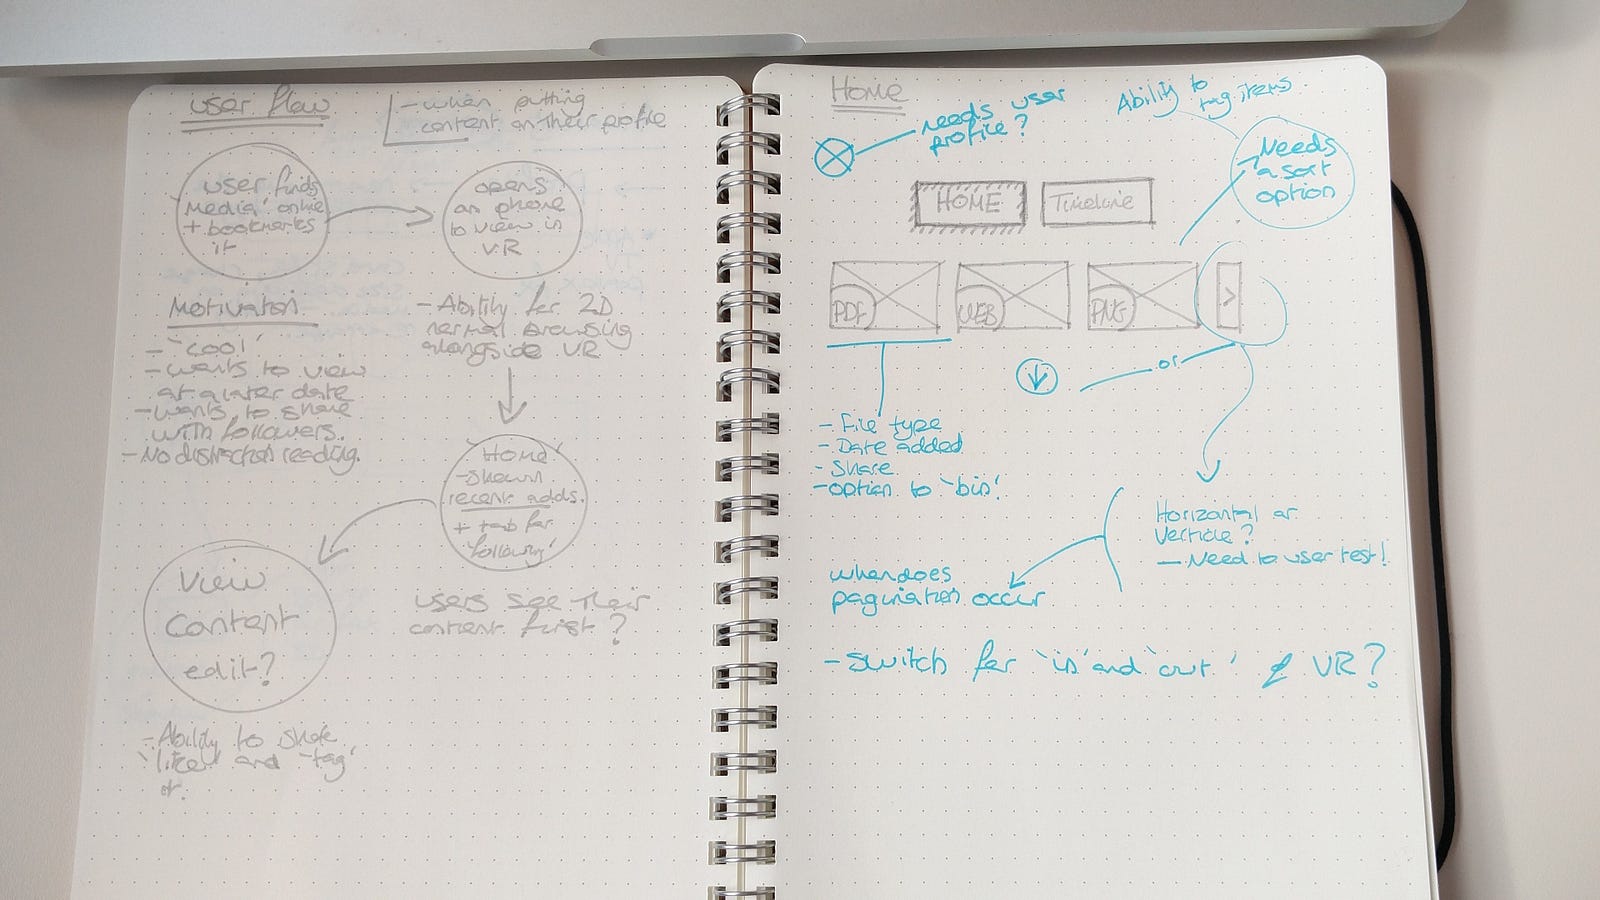 User flow
- when putting
content on their profile
user finds
'media' online
+ bookmarks
it
opens
on phone
to view in
VR
Motivation
- 'cool'
- wants to view
at a later date
- wants to share
with followers.
- No distraction reading.
- Ability for 2D
normal browsing
alongside VR
'HOME'
- shown
recent adds.
+ tab for
'following'
users see their
content first?
View
content
edit?
- Ability to share
'like' and 'tag'
Home
needs user
profile?
Ability to
tag items.
Needs
a sort
option
HOME
Timeline
PDF
WEB
PNG
>
or
- File type
- Date added
- Share
- option to 'bin'.
Horizontal or
verticle?
- Need to user test!
when does
pagination occur
- switch for 'in' and 'out' VR?